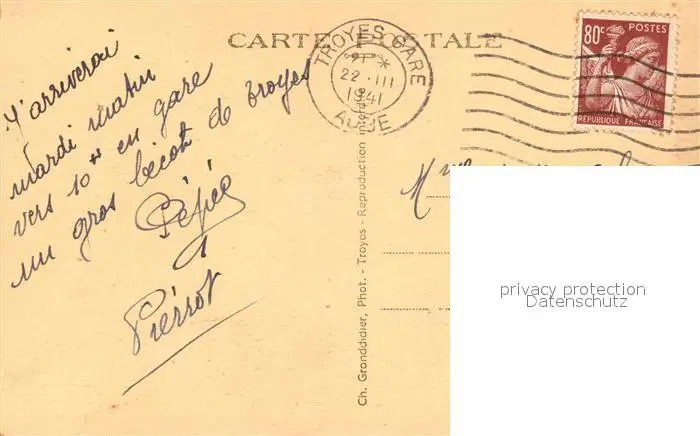 CARTE POSTALE
TROYES GARE
21 *
22 - III
1941
AUBE
80c POSTES
RÉPUBLIQUE FRANÇAISE
J'arriverai
mardi matin
vers 10 H en gare
un gros bécot de Troyes
Pierrot
Mme
Ch. Granddidier, Phot. - Troyes - Reproduction interdite
privacy protection
Datenschutz